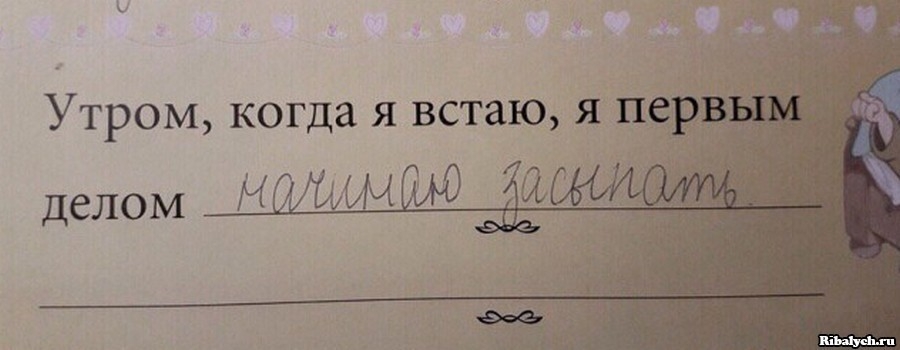 Утром, когда я встаю, я первым
делом начинаю засыпать.
Ribalych.ru